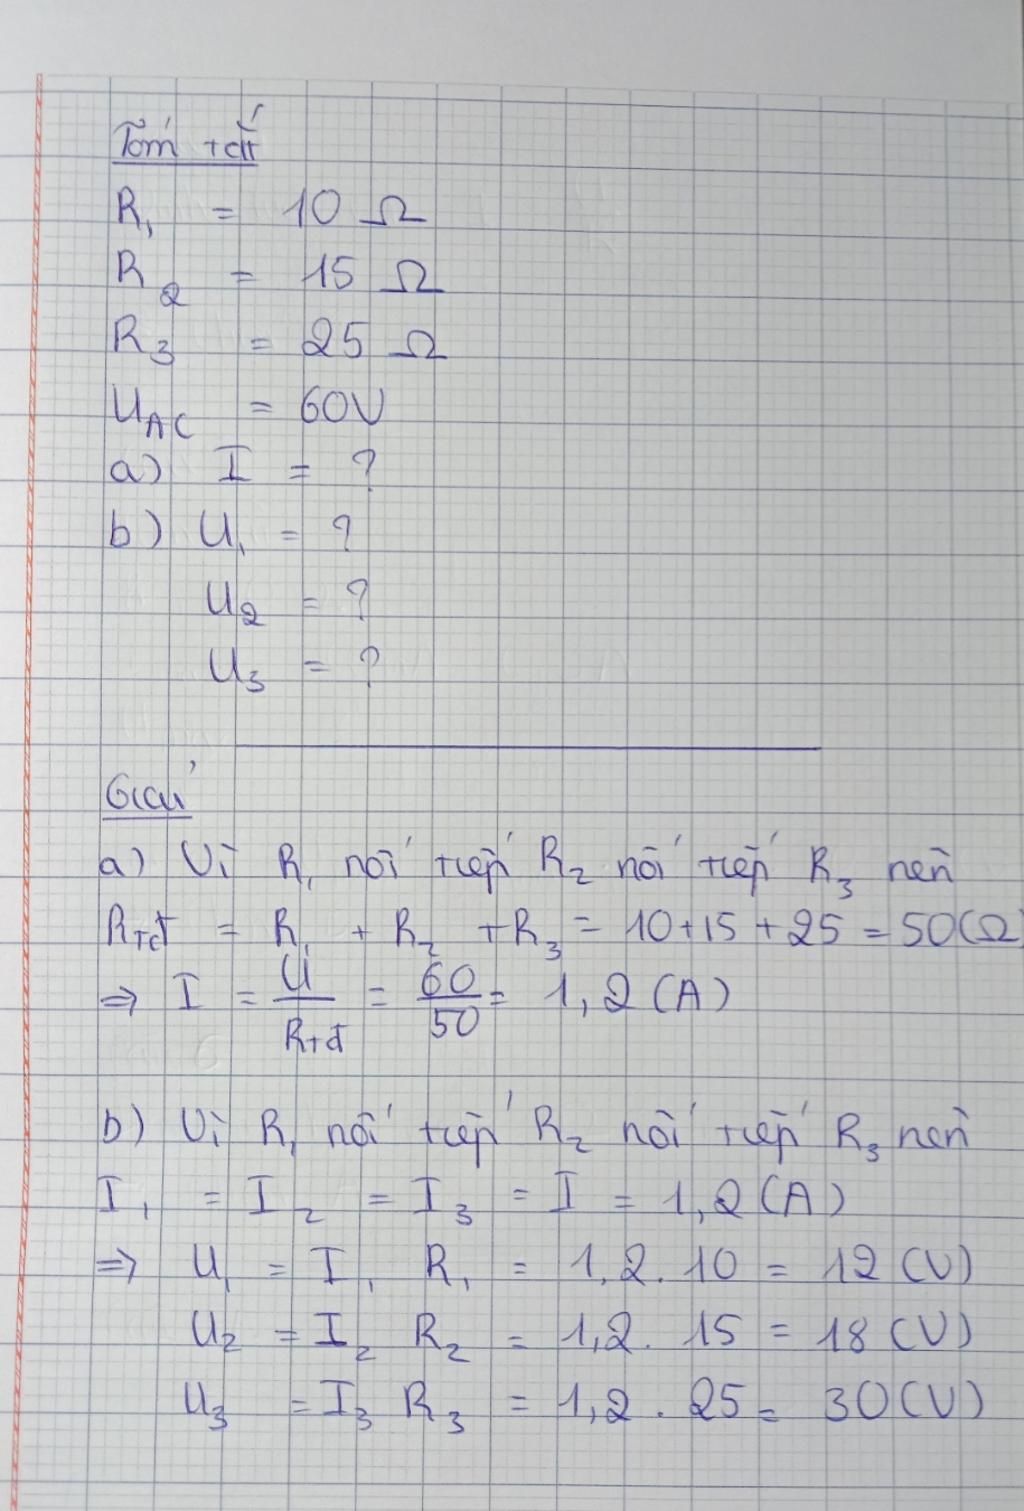 Tóm tắt
R₁ = 10 Ω
R₂ = 15 Ω
R₃ = 25 Ω
U_AC = 60V
a) I = ?
b) U₁ = ?
U₂ = ?
U₃ = ?
Giải
a) Vì R₁ nối tiếp R₂ nối tiếp R₃ nên
R_tđ = R₁ + R₂ + R₃ = 10 + 15 + 25 = 50(Ω)
=> I = U/R_tđ = 60/50 = 1,2 (A)
b) Vì R₁ nối tiếp R₂ nối tiếp R₃ nên
I₁ = I₂ = I₃ = I = 1,2 (A)
=> U₁ = I₁ R₁ = 1,2 . 10 = 12 (V)
U₂ = I₂ R₂ = 1,2 . 15 = 18 (V)
U₃ = I₃ R₃ = 1,2 . 25 = 30 (V)